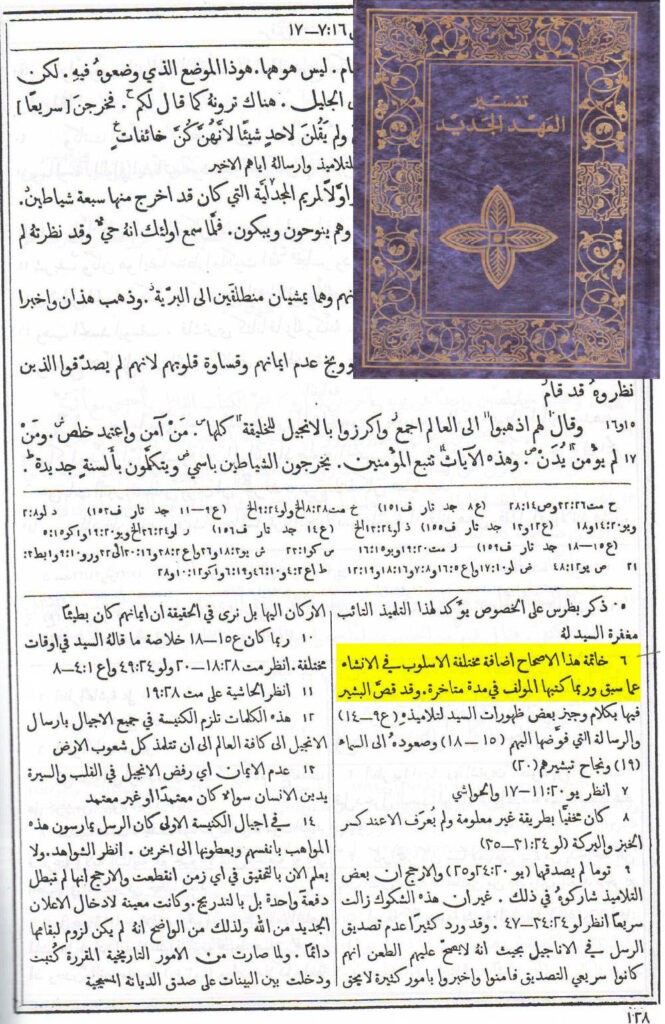 ١٦:٧—١٧
تفسير
العهد الجديد
ام . ليس هو ههنا . هوذا الموضع الذي وضعوهُ فيهِ . لكن
الجليل . هناك ترونهُ كما قال لكم . فخرجنَ [سريعًا]
ولم يقُلنَ لاحدٍ شيئًا لأنهُنَّ كُنَّ خائفاتٍ
للتلاميذ وارسالهُ اياهم الاخير
اوّلًا لمريم المجدلية التي كان قد اخرج منها سبعة شياطين.
وهم ينوحون ويبكون. فلمّا سمع اولئك انهُ حيٌّ وقد نظرتهُ لم
منهم وهما يمشيان منطلقَين الى البرية . وذهب هذان واخبرا
ووبخ عدم ايمانهم وقساوة قلوبهم لانهم لم يصدّقوا الذين
نظروهُ قد قامَ
١٥و١٦ وقال لهم اذهبوا الى العالم اجمع واكرزوا بالانجيل للخليقة كلها . مَنْ آمن واعتمد خلص . ومَنْ
١٧ لم يؤمن يُدَن . وهذه الآيات تتبع المؤمنين. يخرجون الشياطين باسمي ويتكلَّمون بألسنةٍ جديدة .
ح مت٢٢:٢٦وص١٤:٢٨ (ع٨ جد تار ف١٥١) خ مت٨:٢٨الخ ولو٩:٢٤الخ (ع٩—١١ جد تار ف١٥٢) د لو٢:٨
ويو١٤:٢٠و١٨ (ع١٢و١٣ جد تار ف١٥٥) ذ لو١٣:٢٤الخ (ع١٤ جد تار ف١٥٦) ر لو٣٦:٢٤الخ ويو١٩:٢٠واكو٥:١٥
(ع١٥—١٨ جد تار ف١٥٩) ز مت١٩:٢٠ويو١٦:١٥ س كو٢٣:١ ش يو١٨:٣و٣٦واع٣٨:٢و٣٠:١٦الى٣٢ورو٩:١٠و١بط٢١:٣
ص يو٤٨:١٢ ض لو١٧:١٠واع١٦:٥و٧:٨و١٨:١٦و١٢:١٩ ط اع٤:٢و٤٦:١٠و٦:١٩و١كو١٠:١٢و٢٨
٥ ذكر بطرس على الخصوص يؤكد لهذا التلميذ التائب
مغفرة السيد لهُ
٦ خاتمة هذا الاصحاح اضافة مختلفة الاسلوب في الانشاء
عما سبق وربما كتبها المولف في مدة متاخرة. وقد قصَّ البشير
فيها بكلام وجيز بعض ظهورات السيد لتلاميذهِ (ع٩—١٤)
والرسالة التي فوَّضها اليهم (١٥—١٨) وصعودهُ الى السماء
(١٩) ونجاح تبشيرهم(٢٠)
٧ انظر يو ١١:٢٠—١٧ والحواشي
٨ كان مخفيًّا بطريقة غير معلومة ولم يعرَف الا عند كسر
الخبز والبركة (لو ٢١:٢٤—٣٥)
٩ توما لم يصدقها (يو ٢٤:٢٠و٢٥) والارجح ان بعض
التلاميذ شاركوهُ في ذلك . غير ان هذه الشكوك زالت
سريعًا انظر لو٢٤:٢٤—٤٧ . وقد ورد كثيرًا عدم تصديق
الرسل في الاناجيل بحيث انهُ لا يصحّ عليهم الطعن انهم
كانوا سريعي التصديق فامنوا واخبروا بامور كثيرة لا يحق
الاركان اليها بل نرى في الحقيقة ان ايمانهم كان بطيئًا
١٠ ربما كان ع١٥—١٨ خلاصة ما قالهُ السيد في اوقات
مختلفة . انظر مت ١٨:٢٨—٢٠ ولو ٤٩:٢٤ واع ٤:١—٨
١١ انظر الحاشية على مت ١٩:٢٨
١٢ هذه الكلمات تلزم الكنيسة في جميع الاجيال بارسال
الانجيل الى كافة العالم الى ان تتلمذ كل شعوب الارض
١٣ عدم الايمان اي رفض الانجيل في القلب والسيرة
يدين الانسان سواء كان معتمدًا او غير معتمد
١٤ في اجيال الكنيسة الاولى كان الرسل يمارسون هذه
المواهب بانفسهم ويعطونها الى اخرين . انظر الشواهد. ولا
يعلم الان بالتحقيق في اي زمن انقطعت والارجح انها لم تبطل
دفعة واحدة بل بالتدريج. وكانت معينة لادخال الاعلان
الجديد من الله ولذلك من الواضح انهُ لم يكن لزوم لبقائها
دائمًا . ولما صارت من الامور التاريخية المقررة كُتبت
ودخلت بين البينات على صدق الديانة المسيحية
١٢٨